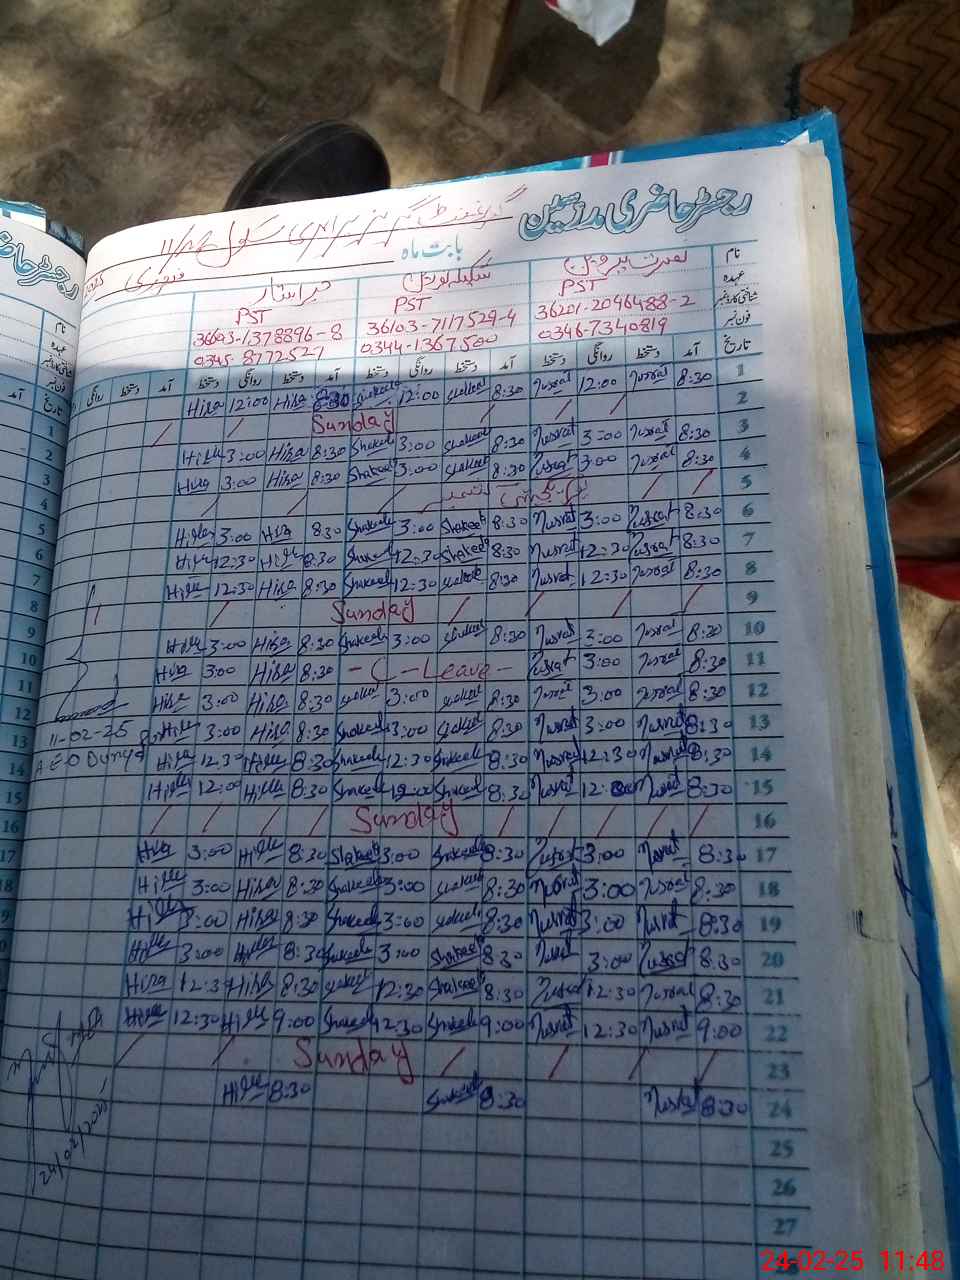 رجسٹر حاضری مدرسین
گورنمنٹ گرلز پرائمری سکول 11
بابت ماہ فروری 2025
نام نصرت پروین شکیلہ نورین حرا ستار
عہدہ PST PST PST
شناختی کارڈ نمبر 36201-2096488-2 36103-7117529-4 36603-1378896-8
فون نمبر 0346-7340819 0344-1367500 0345-8772527
تاریخ آمد دستخط روانگی دستخط آمد دستخط روانگی دستخط آمد دستخط روانگی دستخط آمد دستخط روانگی
1 8:30 Nusrat 12:00 Nusrat 8:30 Shakeela 12:00 Shakeela 8:30 Hira 12:00 Hira
2 Sunday
3 8:30 Nusrat 3:00 Nusrat 8:30 Shakeela 3:00 Shakeela 8:30 Hira 3:00 Hira
4 8:30 Nusrat 3:00 Nusrat 8:30 Shakeela 3:00 Shakeela 8:30 Hira 3:00 Hira
5 یوم یکجہتی کشمیر
6 8:30 Nusrat 3:00 Nusrat 8:30 Shakeela 3:00 Shakeela 8:30 Hira 3:00 Hira
7 8:30 Nusrat 12:30 Nusrat 8:30 Shakeela 12:30 Shakeela 8:30 Hira 12:30 Hira
8 8:30 Nusrat 12:30 Nusrat 8:30 Shakeela 12:30 Shakeela 8:30 Hira 12:30 Hira
9 Sunday
10 8:30 Nusrat 3:00 Nusrat 8:30 Shakeela 3:00 Shakeela 8:30 Hira 3:00 Hira
11 8:30 Nusrat 3:00 Nusrat - C - Leave - 8:30 Hira 3:00 Hira
12 8:30 Nusrat 3:00 Nusrat 8:30 Shakeela 3:00 Shakeela 8:30 Hira 3:00 Hira
13 8:30 Nusrat 3:00 Nusrat 8:30 Shakeela 3:00 Shakeela 8:30 Hira 3:00 Hira
11-02-25
14 8:30 Nusrat 12:30 Nusrat 8:30 Shakeela 12:30 Shakeela 8:30 Hira 12:30 Hira
AEO
15 8:30 Nusrat 12:00 Nusrat 8:30 Shakeela 12:00 Shakeela 8:30 Hira 12:00 Hira
16 Sunday
17 8:30 Nusrat 3:00 Nusrat 8:30 Shakeela 3:00 Shakeela 8:30 Hira 3:00 Hira
18 8:30 Nusrat 3:00 Nusrat 8:30 Shakeela 3:00 Shakeela 8:30 Hira 3:00 Hira
19 8:30 Nusrat 3:00 Nusrat 8:30 Shakeela 3:00 Shakeela 8:30 Hira 3:00 Hira
20 8:30 Nusrat 3:00 Nusrat 8:30 Shakeela 3:00 Shakeela 8:30 Hira 3:00 Hira
21 8:30 Nusrat 12:30 Nusrat 8:30 Shakeela 12:30 Shakeela 8:30 Hira 12:30 Hira
22 9:00 Nusrat 12:30 Nusrat 9:00 Shakeela 12:30 Shakeela 9:00 Hira 12:30 Hira
23 Sunday
24 8:30 Nusrat 8:30 Shakeela 8:30 Hira
24/02/2025
25
26
27
24-02-25 11:48